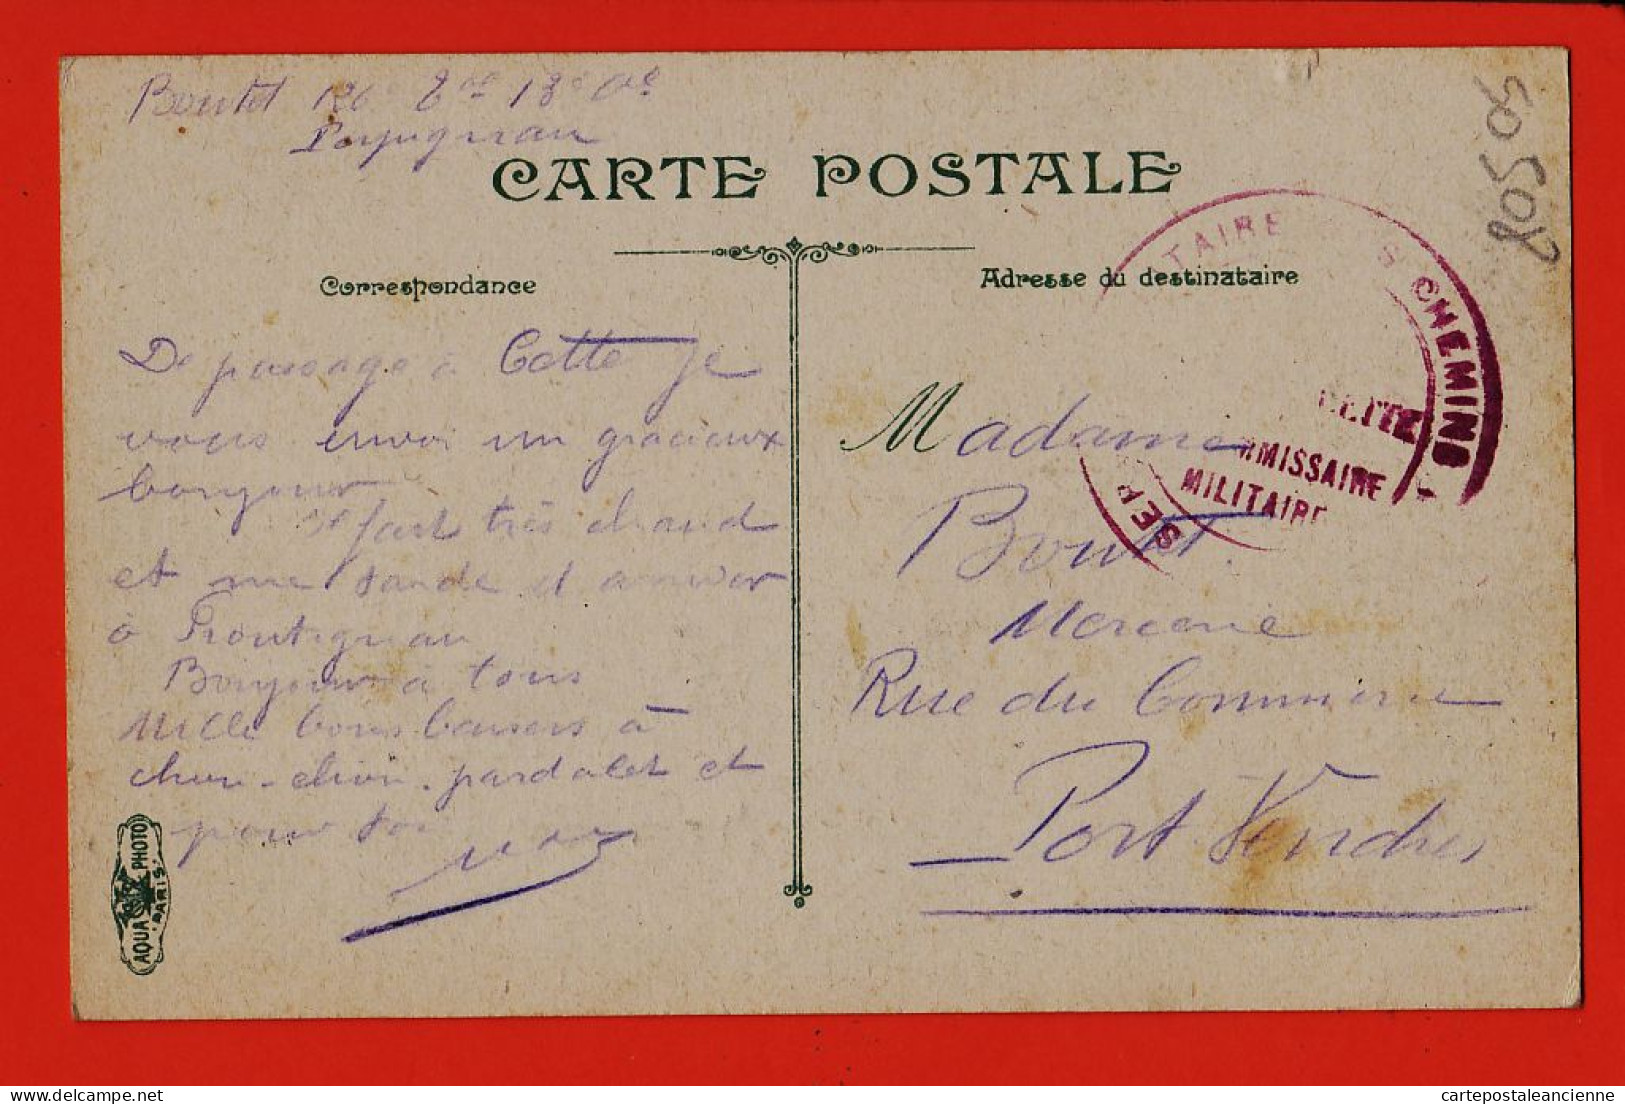 Boutet 126e 8al 18e Cie
Perpignan
CARTE POSTALE
Correspondance
Adresse du destinataire
De passage à Cette je
vous envoi un gracieux
bonjour
Il fait très chaud
et me tarde d'arriver
à Frontignan
Bonjour à tous
Mille bons baisers à
chou-chou. pardalet et
pour toi
Madame
Boutet
Mercerie
Rue du Commerce
Port Vendres
TAIRE S CHEMINS
CETTE
MMISSAIRE
MILITAIRE
SER
AQUA PHOTO
PARIS
805 05
delcampe.net
cartepostaleancienne